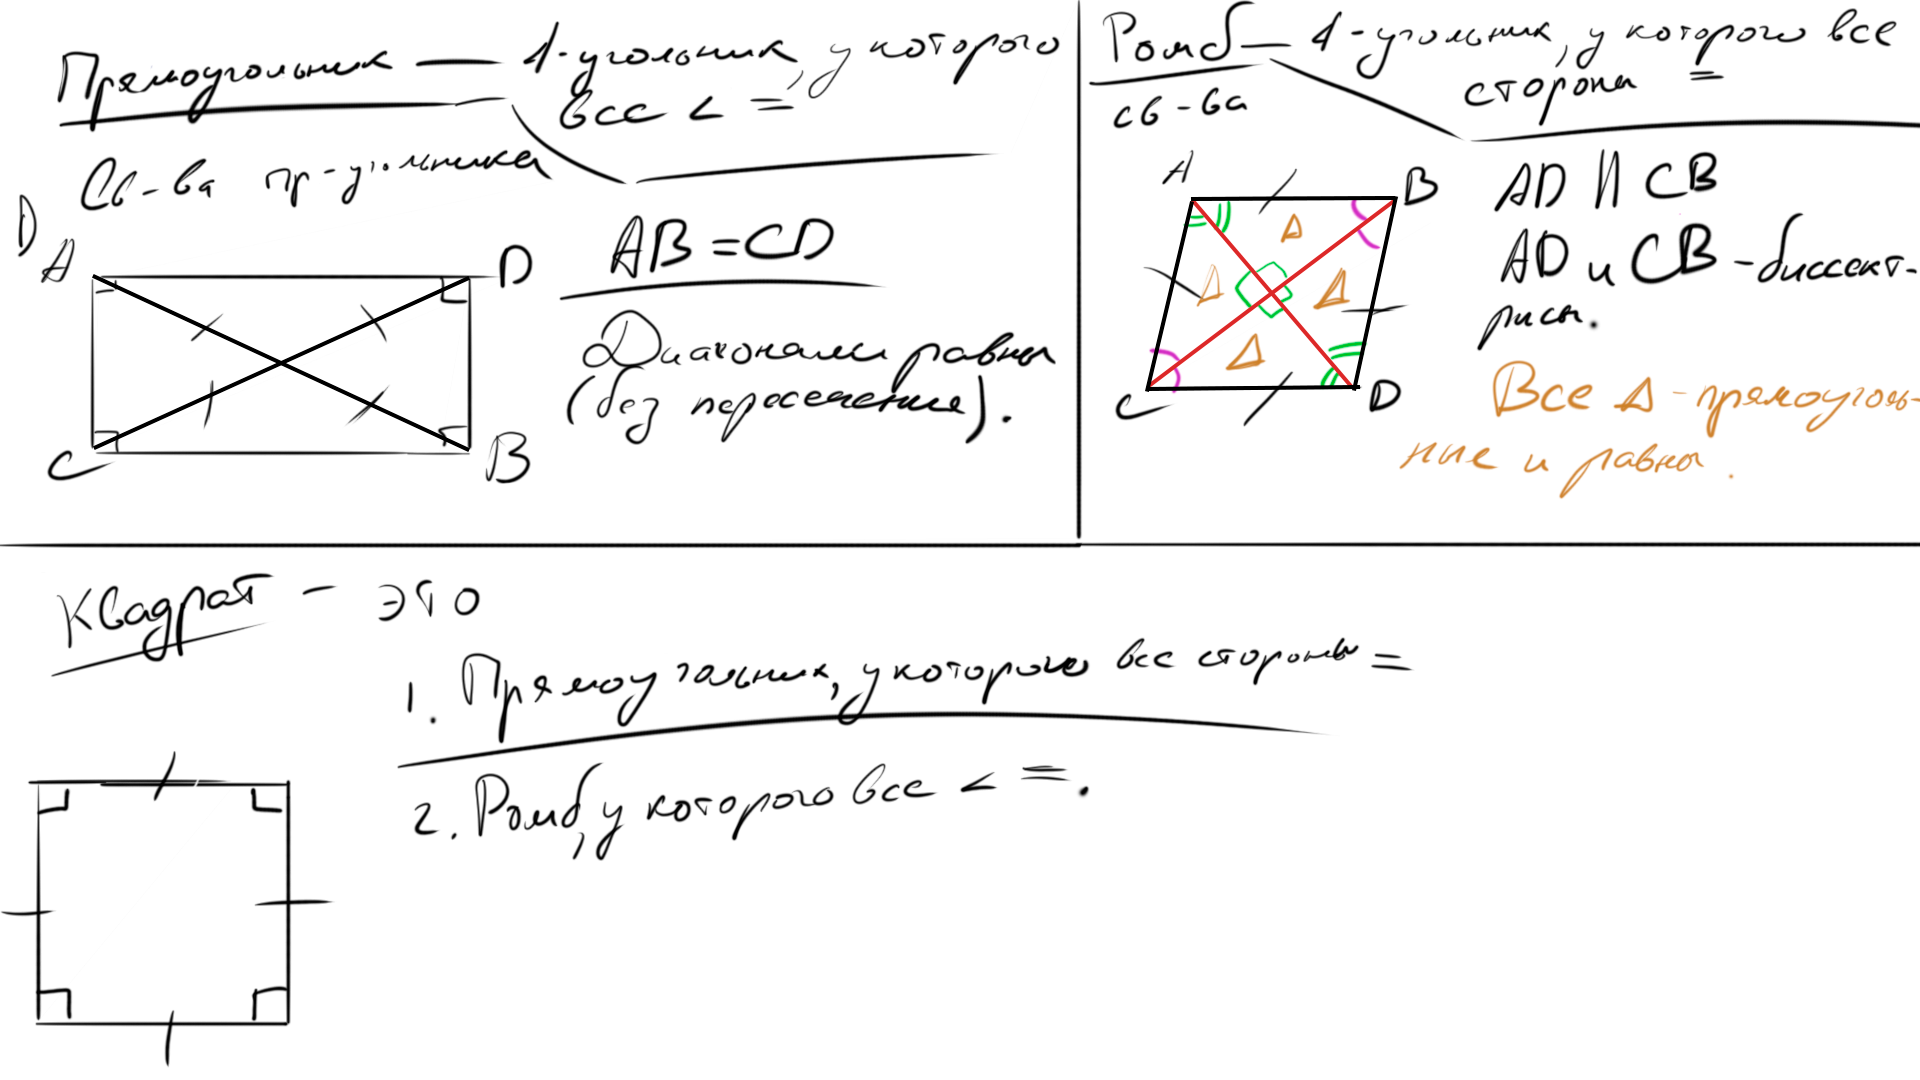 Прямоугольник — 4-угольник, у которого
все < =
Св-ва пр-угольника
D
A
D
C
B
AB = CD
Диагонали равны
(без пересечения).
Ромб — 4-угольник, у которого все
стороны =
св-ва
A
B
C
D
AD || CB
AD и CB - биссект-
рисы.
Все Δ - прямоуголь-
ные и равны.
Δ
Δ
Δ
Δ
Квадрат - это
1. Прямоугольник, у которого все стороны =
2. Ромб, у которого все < =.